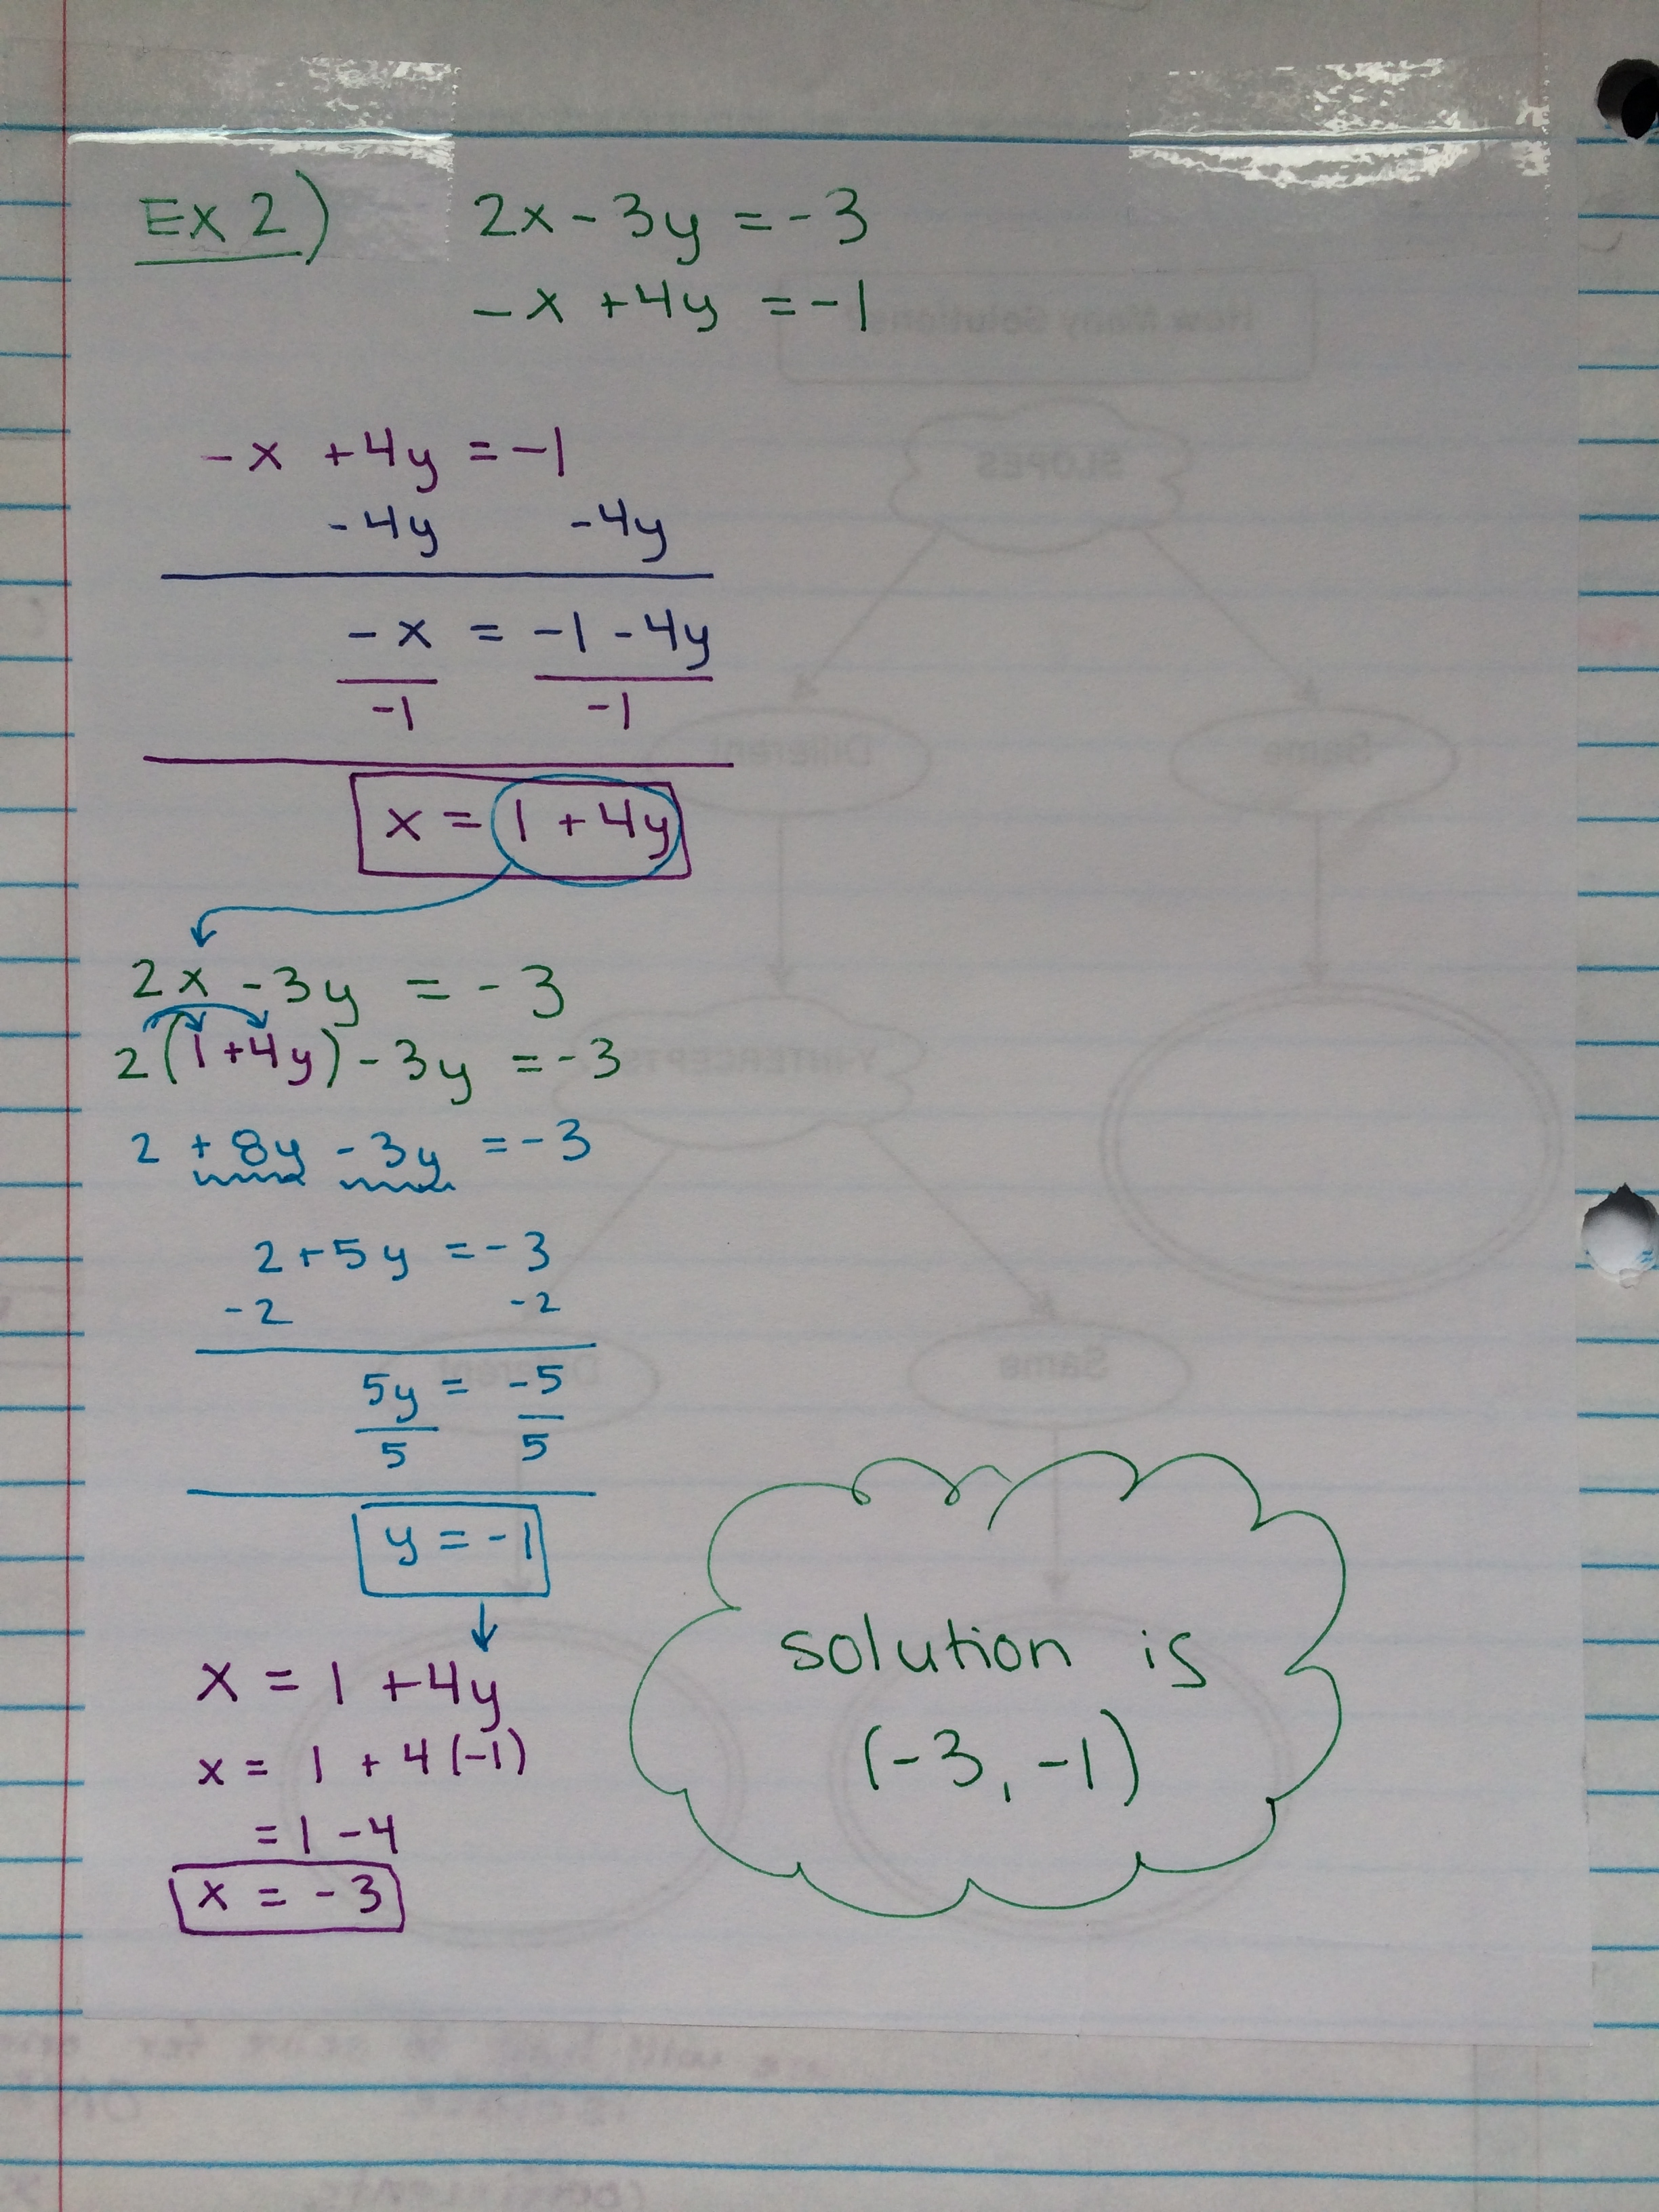 Ex 2) 2x - 3y = -3
-x + 4y = -1
-x + 4y = -1
-4y -4y
-x = -1 - 4y
-1 -1
x = 1 + 4y
2x - 3y = -3
2(1 + 4y) - 3y = -3
2 + 8y - 3y = -3
2 + 5y = -3
-2 -2
5y = -5
5 5
y = -1
x = 1 + 4y
x = 1 + 4(-1)
= 1 - 4
x = -3
solution is
(-3, -1)
How Many Solutions?
SLOPES
Different Same
Y-INTERCEPTS
Different Same